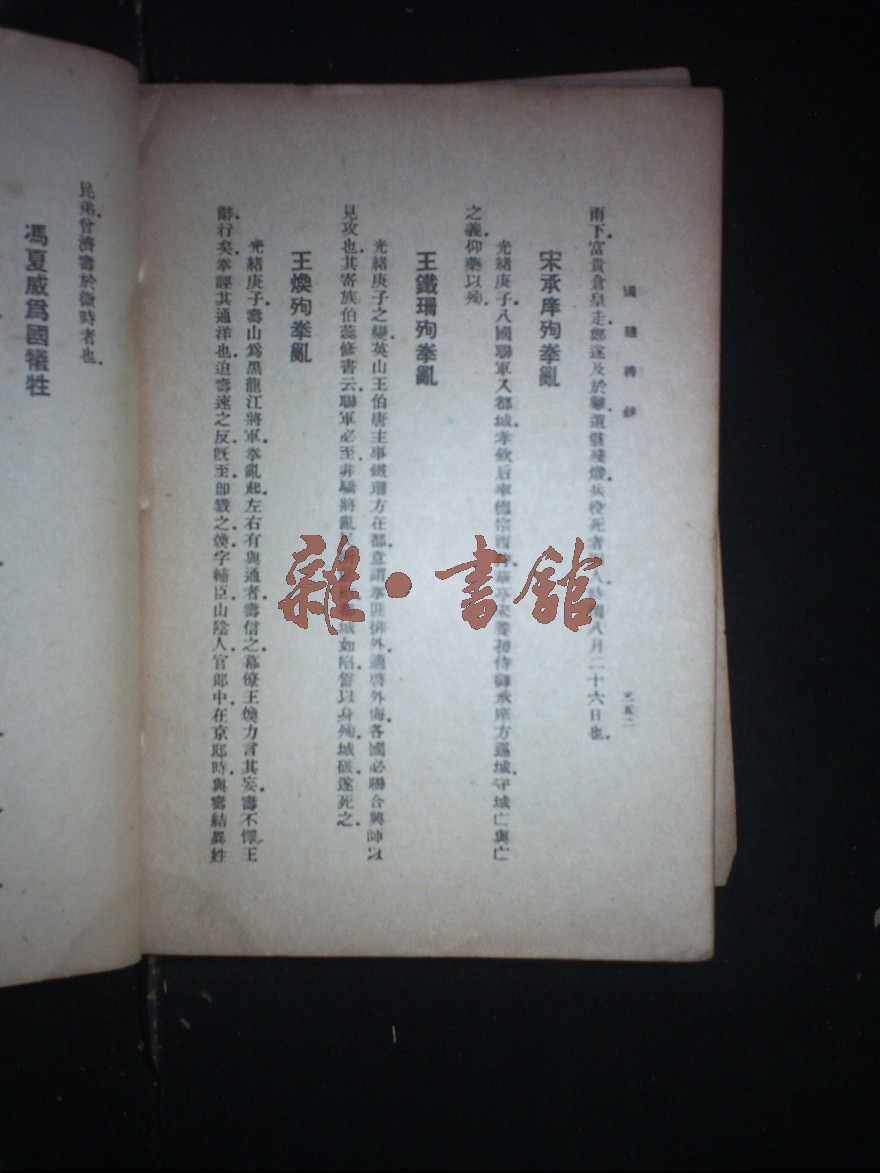 國 恥
二五二
雨下富貴倉皇走鄰遂及於難遺骸殘燬兵役死者八月二十六日也
宋承庠殉拳亂
光緒庚子八國聯軍入都城孝欽后率德宗西侍御承庠方巡城守城亡與亡
之義仰藥以殉
王鐵珊殉拳亂
光緒庚子之變英山王伯唐主事鐵珊方在都意謂拳匪排外適啓外侮各國必聯合興師以
見攻也其寄族伯蕊修書云聯軍必至非驕將亂城如陷誓以身殉城破遂死之
王煥殉拳亂
光緒庚子壽山爲黑龍江將軍拳亂起左右有與通者壽信之幕僚王煥力言其妄壽不懌王
辭行矣拳誣其通洋也迫壽速之反旣至卽戮之煥字輔臣山陰人官郞中在京邸時與壽結異姓
昆弟曾濟壽於微時者也
馮夏威爲國犧牲
雜·書館